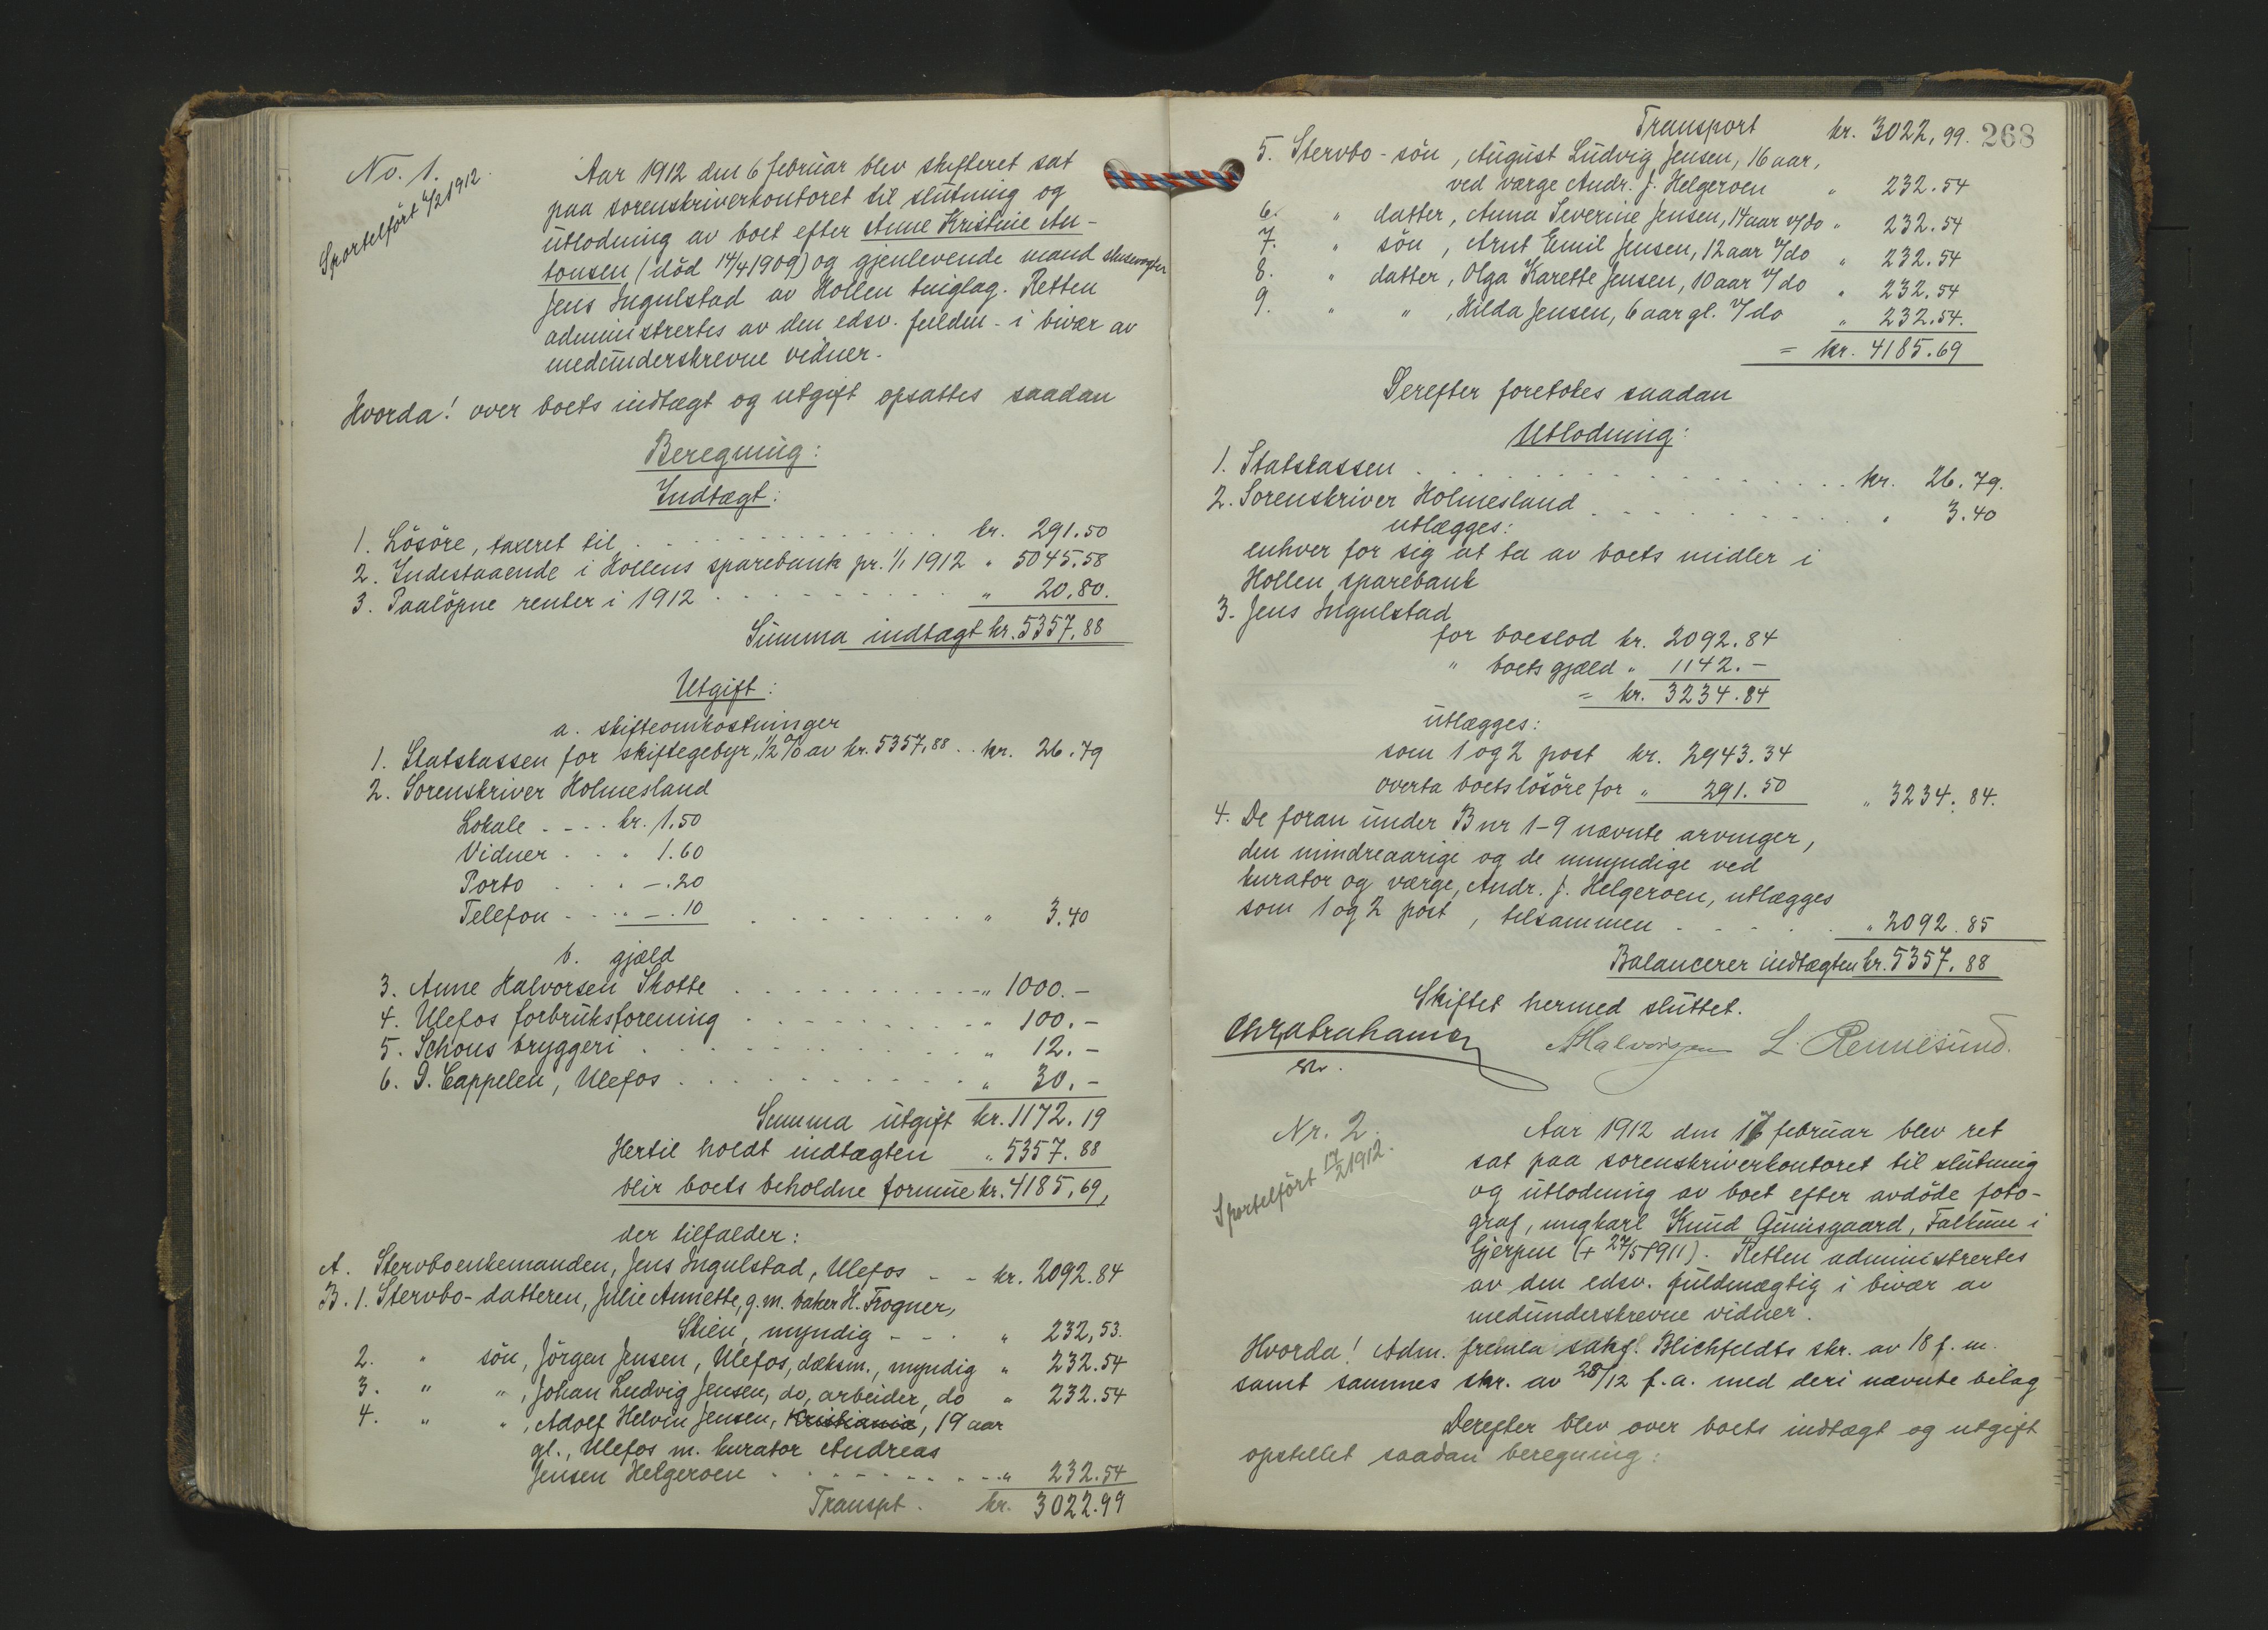 No. 1.
Sportelført 6/2 1912.
Aar 1912 den 6 februar blev skifteret sat
paa sorenskriverkontoret til slutning og
utlodning av boet efter Anne Kristine An-
tonsen (död 14/4 1909) og gjenlevende mand slusevogter
Jens Ingulstad av Hollen tinglag. Retten
administrertes av den edsv. fuldm. i bivær av
medunderskrevne vidner.
Hvorda! over boets indtægt og utgift opsattes saadan
Beregning:
Indtægt:
1. Lösöre, taxeret til . . . . kr. 291.50
2. Indestaaende i Hollens sparebank pr. 1/1 1912 " 5045.58
3. Paalöpne renter i 1912 . . . . " 20.80.
Summa indtægt kr. 5357,88
Utgift:
a. skifteomkostninger
1. Statskassen for skiftegebyr, 1/2 % av kr. 5357,88 . . kr. 26.79
2. Sorenskriver Holmesland
Lokale . . . . kr. 1.50
Vidner . . . " 1.60
Porto . . . " -.20
Telefon . . . " -.10 . . . . " 3.40
b. gjæld
3. Anne Halvorsen Skotte . . . . " 1000.-
4. Ulefos forbruksforening . . . . " 100.-
5. Schous bryggeri . . . . " 12.-
6. D. Cappelen, Ulefos . . . . " 30.-
Summa utgift kr. 1172.19
Hertil holdt indtægten " 5357.88
blir boets beholdne formue kr. 4185,69,
der tilfalder:
A. Stervboenkemanden, Jens Ingulstad, Ulefos - - kr. 2092.84
B. 1. Stervbo-datteren, Julie Annette, g. m. baker H. Frogner,
Skien, myndig - - . " 232,53.
2. " sön, Jörgen Jensen, Ulefos, dæksm., myndig " 232.54
3. " ", Johan Ludvig Jensen, do, arbeider, do " 232.54
4. " ", Adolf Helvin Jensen, Kristiania, 19 aar
gl., Ulefos m. kurator Andreas
Jensen Helgeroen . . . . " 232.54
Transpt. kr. 3022.99
Transport kr. 3022,99. 268
5. Stervbo-sön, August Ludvig Jensen, 16 aar,
ved værge Andr. J. Helgeroen " 232.54
6. " datter, Anna Severine Jensen, 14 aar v/do " 232.54
7. " sön, Arnt Emil Jensen, 12 aar v/do " 232.54
8. " datter, Olga Karette Jensen, 10 aar v/do " 232.54
9. " ", Hilda Jensen, 6 aar gl. v/do " 232.54.
= kr. 4185.69
Derefter foretokes saadan
Utlodning:
1. Statskassen . . . . kr. 26.79.
2. Sorenskriver Holmesland . . . . " 3.40
utlægges:
enhver for sig at ta av boets midler i
Hollen sparebank
3. Jens Ingulstad
for boeslod kr. 2092.84
" boets gjæld " 1142.-
= kr. 3234.84
utlægges:
som 1 og 2 post kr. 2943.34
overta boets lösöre for " 291.50 " 3234.84.
4. De foran under B nr 1-9 nævnte arvinger,
den mindreaarige og de umyndige ved
kurator og værge, Andr. J. Helgeroen, utlægges
som 1 og 2 post, tilsammen . . . . " 2092.85
Balancerer indtægten kr. 5357.88
Skiftet hermed sluttet.
Chr Abrahamsen AHalvorsen L. Rennesund.
Nr. 2.
Sportelfört 17/2 1912.
Aar 1912 den 17 februar blev ret
sat paa sorenskriverkontoret til slutning
og utlodning av boet efter avdöde foto-
graf, ungkarl Knud Gunisgaard, Falkum i
Gjerpen (+ 27/5 1911). Retten administrertes
av den edsv. fuldmægtig i bivær av
medunderskrevne vidner.
Hvorda! Adm. fremla sakf. Blichfeldts skr. av 18 f. m.
samt sammes skr. av 28/12 f. a. med deri nævnte bilag
Derefter blev over boets indtægt og utgift
opstillet saadan beregning: